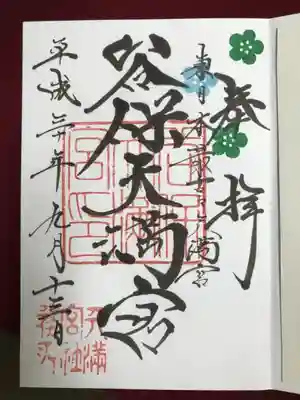 奉拝
東日本最古天満宮
谷保天満宮
平成三十年九月十三日
天満
宮社
務所